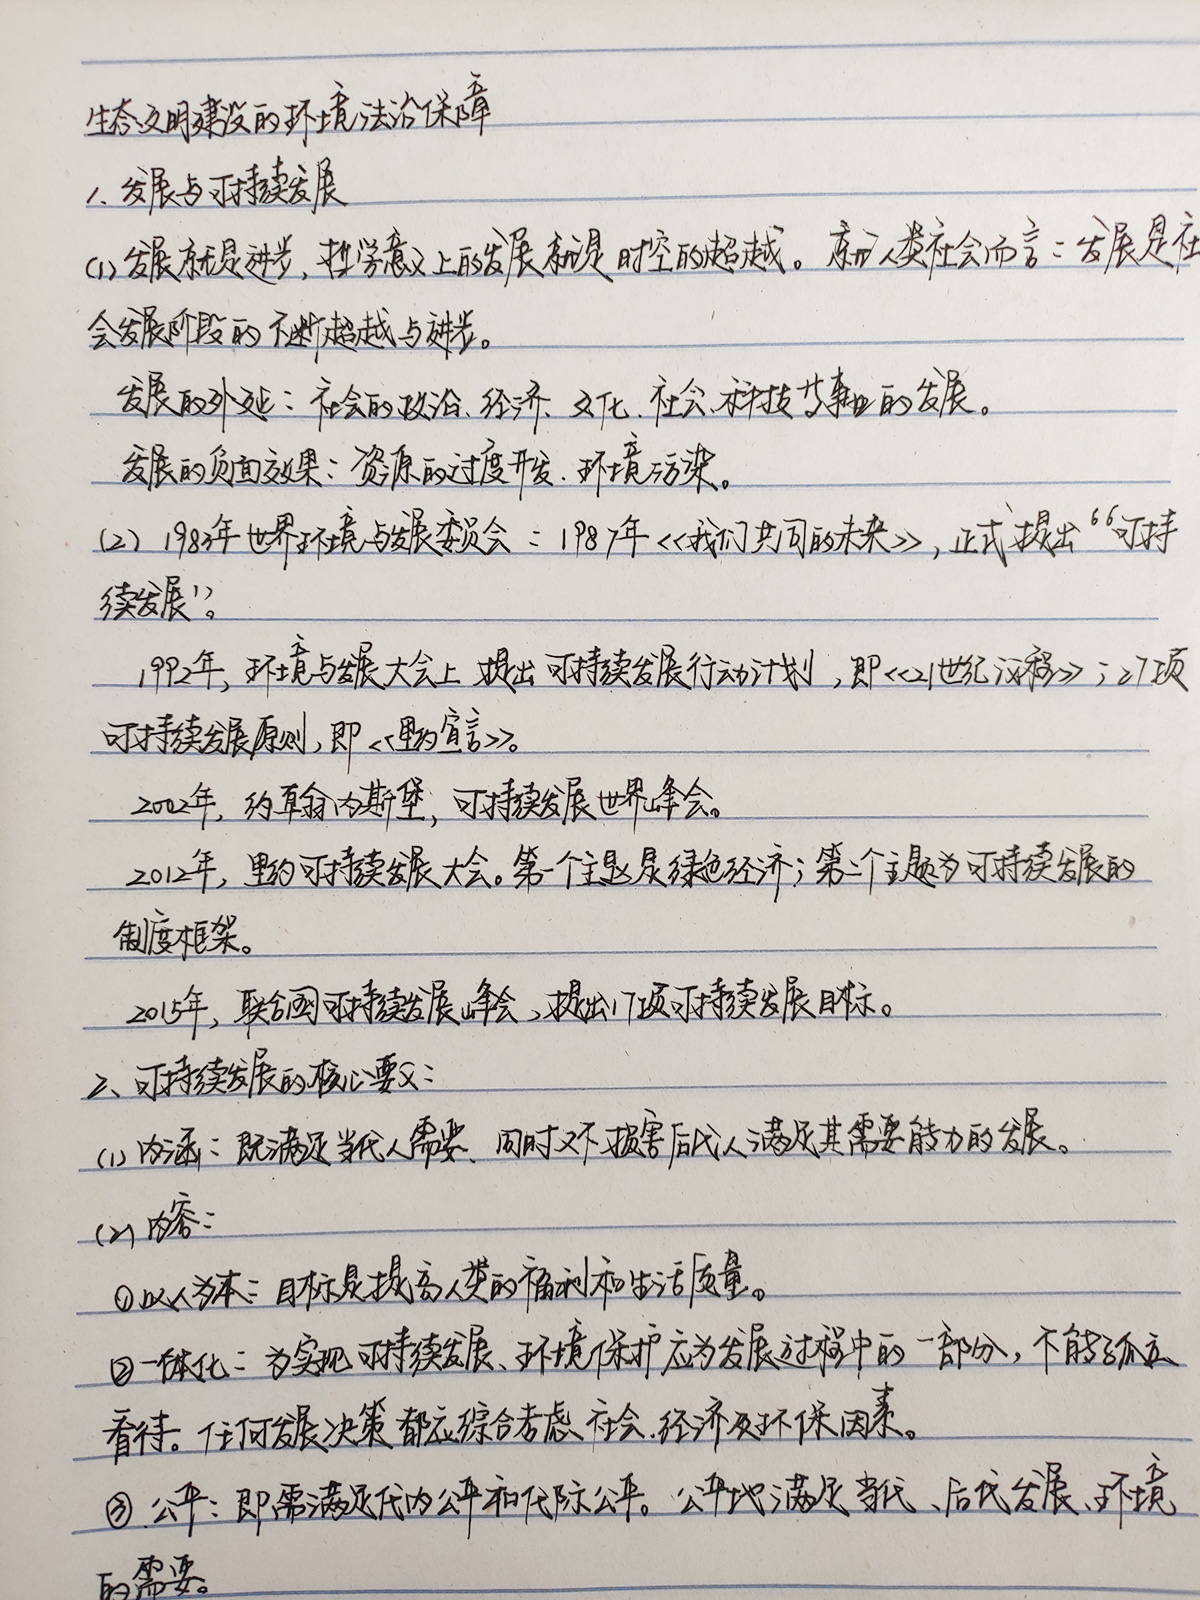 生态文明建设的环境法治保障
1. 发展与可持续发展
(1) 发展就是进步，哲学意义上的发展就是时空的超越。就人类社会而言：发展是社
会发展阶段的不断超越与进步。
发展的外延：社会的政治、经济、文化、社会、科技等事业的发展。
发展的负面效果：资源的过度开发、环境污染。
(2) 1983年世界环境与发展委员会：1987年<<我们共同的未来>>，正式提出“可持
续发展”。
1992年，环境与发展大会上提出可持续发展行动计划，即<<21世纪议程>>；27项
可持续发展原则，即<<里约宣言>>。
2002年，约翰内斯堡，可持续发展世界峰会。
2012年，里约可持续发展大会。第一个主题是绿色经济；第二个主题为可持续发展的
制度框架。
2015年，联合国可持续发展峰会，提出17项可持续发展目标。
2、可持续发展的核心要义：
(1) 内涵：既满足当代人需要、同时又不损害后代人满足其需要能力的发展。
(2) 内容：
①以人为本：目标是提高人类的福利和生活质量。
②一体化：为实现可持续发展、环境保护应为发展过程中的一部分，不能孤立
看待。任何发展决策都应综合考虑社会、经济及环保因素。
③ 公平：即需满足代内公平和代际公平。公平地满足当代、后代发展、环境
的需要。